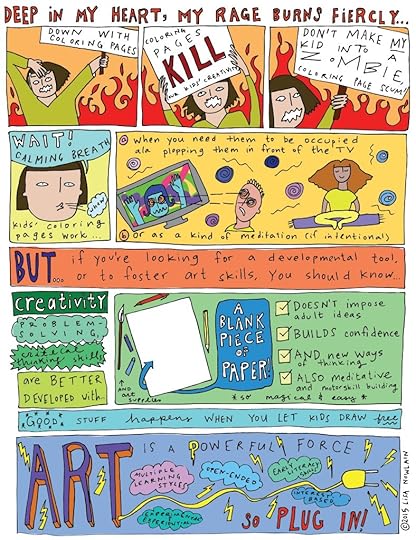 DEEP IN MY HEART, MY RAGE BURNS FIERCLY...
DOWN WITH
COLORING PAGES
COLORING
PAGES
KILL
OUR KIDS' CREATIVITY
DON'T MAKE MY
KID INTO A
ZOMBIE,
COLORING PAGE SCUM!
WAIT!
CALMING BREATH
WHEW
kids' coloring
pages work...
a when you need them to be occupied
ala plopping them in front of the TV
b or as a kind of meditation (if intentional)
BUT... if you're looking for a developmental tool,
or to foster art skills, you should know...
creativity
PROBLEM-
SOLVING,
critical
thinking skills
are BETTER
DEVELOPED with...
↑
AND art
supplies
A
BLANK
PIECE
OF
PAPER!
*so magical & easy*
DOESN'T impose
adult ideas
BUILDS confidence
AND new ways
of thinking
ALSO meditative
and motorskill building
*GOOD* STUFF happens WHEN YOU LET KIDS DRAW free
ART IS A POWERFUL FORCE
MULTIPLE
LEARNING
STYLES
OPEN-ENDED
EARLY LITERACY
EXPERIMENTAL
EXPERIENTIAL
INTEREST
BASED
SO PLUG IN!
©2015 LISA NOWLAIN